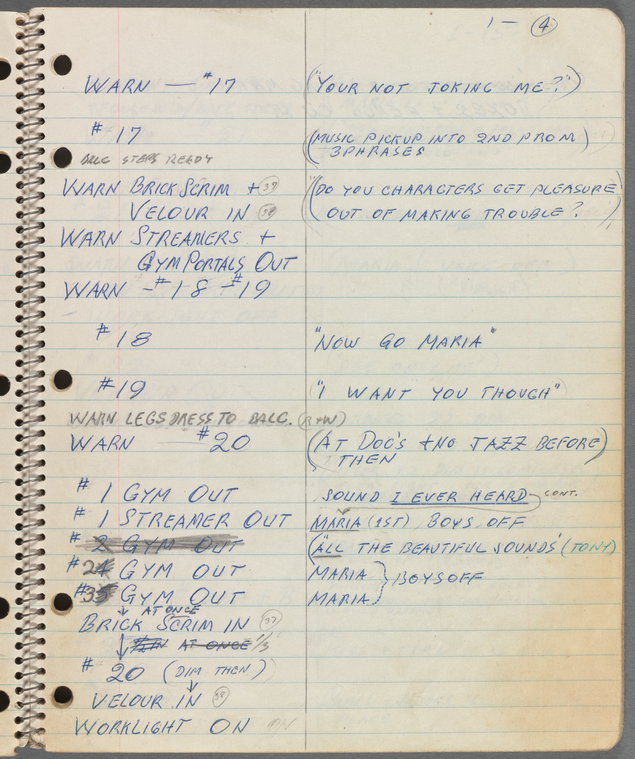 1 - 4
WARN — #17 ("YOUR NOT JOKING ME?")
#17 (MUSIC PICKUP INTO 2ND PROM)
3 PHRASES
BALC STEPS READY
WARN BRICK SCRIM + 37 ("DO YOU CHARACTERS GET PLEASURE
VELOUR IN 38 OUT OF MAKING TROUBLE?")
WARN STREAMERS +
GYM PORTALS OUT
WARN - #18 - #19
#18 "NOW GO MARIA"
#19 "I WANT YOU THOUGH"
WARN LEGS PRESS TO BALC. (R+W)
WARN — #20 (AT DOC'S + NO JAZZ BEFORE)
THEN
#1 GYM OUT SOUND I EVER HEARD CONT.
#1 STREAMER OUT MARIA (1ST) BOYS OFF
#2 GYM OUT ("ALL THE BEAUTIFUL SOUNDS" (TONY)
#2 GYM OUT MARIA } BOYS OFF
#3 GYM OUT MARIA
AT ONCE
BRICK SCRIM IN 37
AT ONCE 1/3
#20 (DIM THEN)
VELOUR IN 38
WORKLIGHT ON